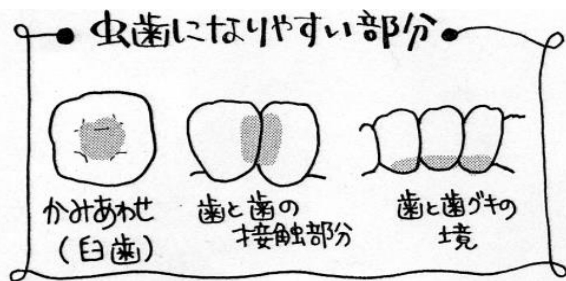 虫歯になりやすい部分
かみあわせ
(臼歯)
歯と歯の
接触部分
歯と歯グキの
境